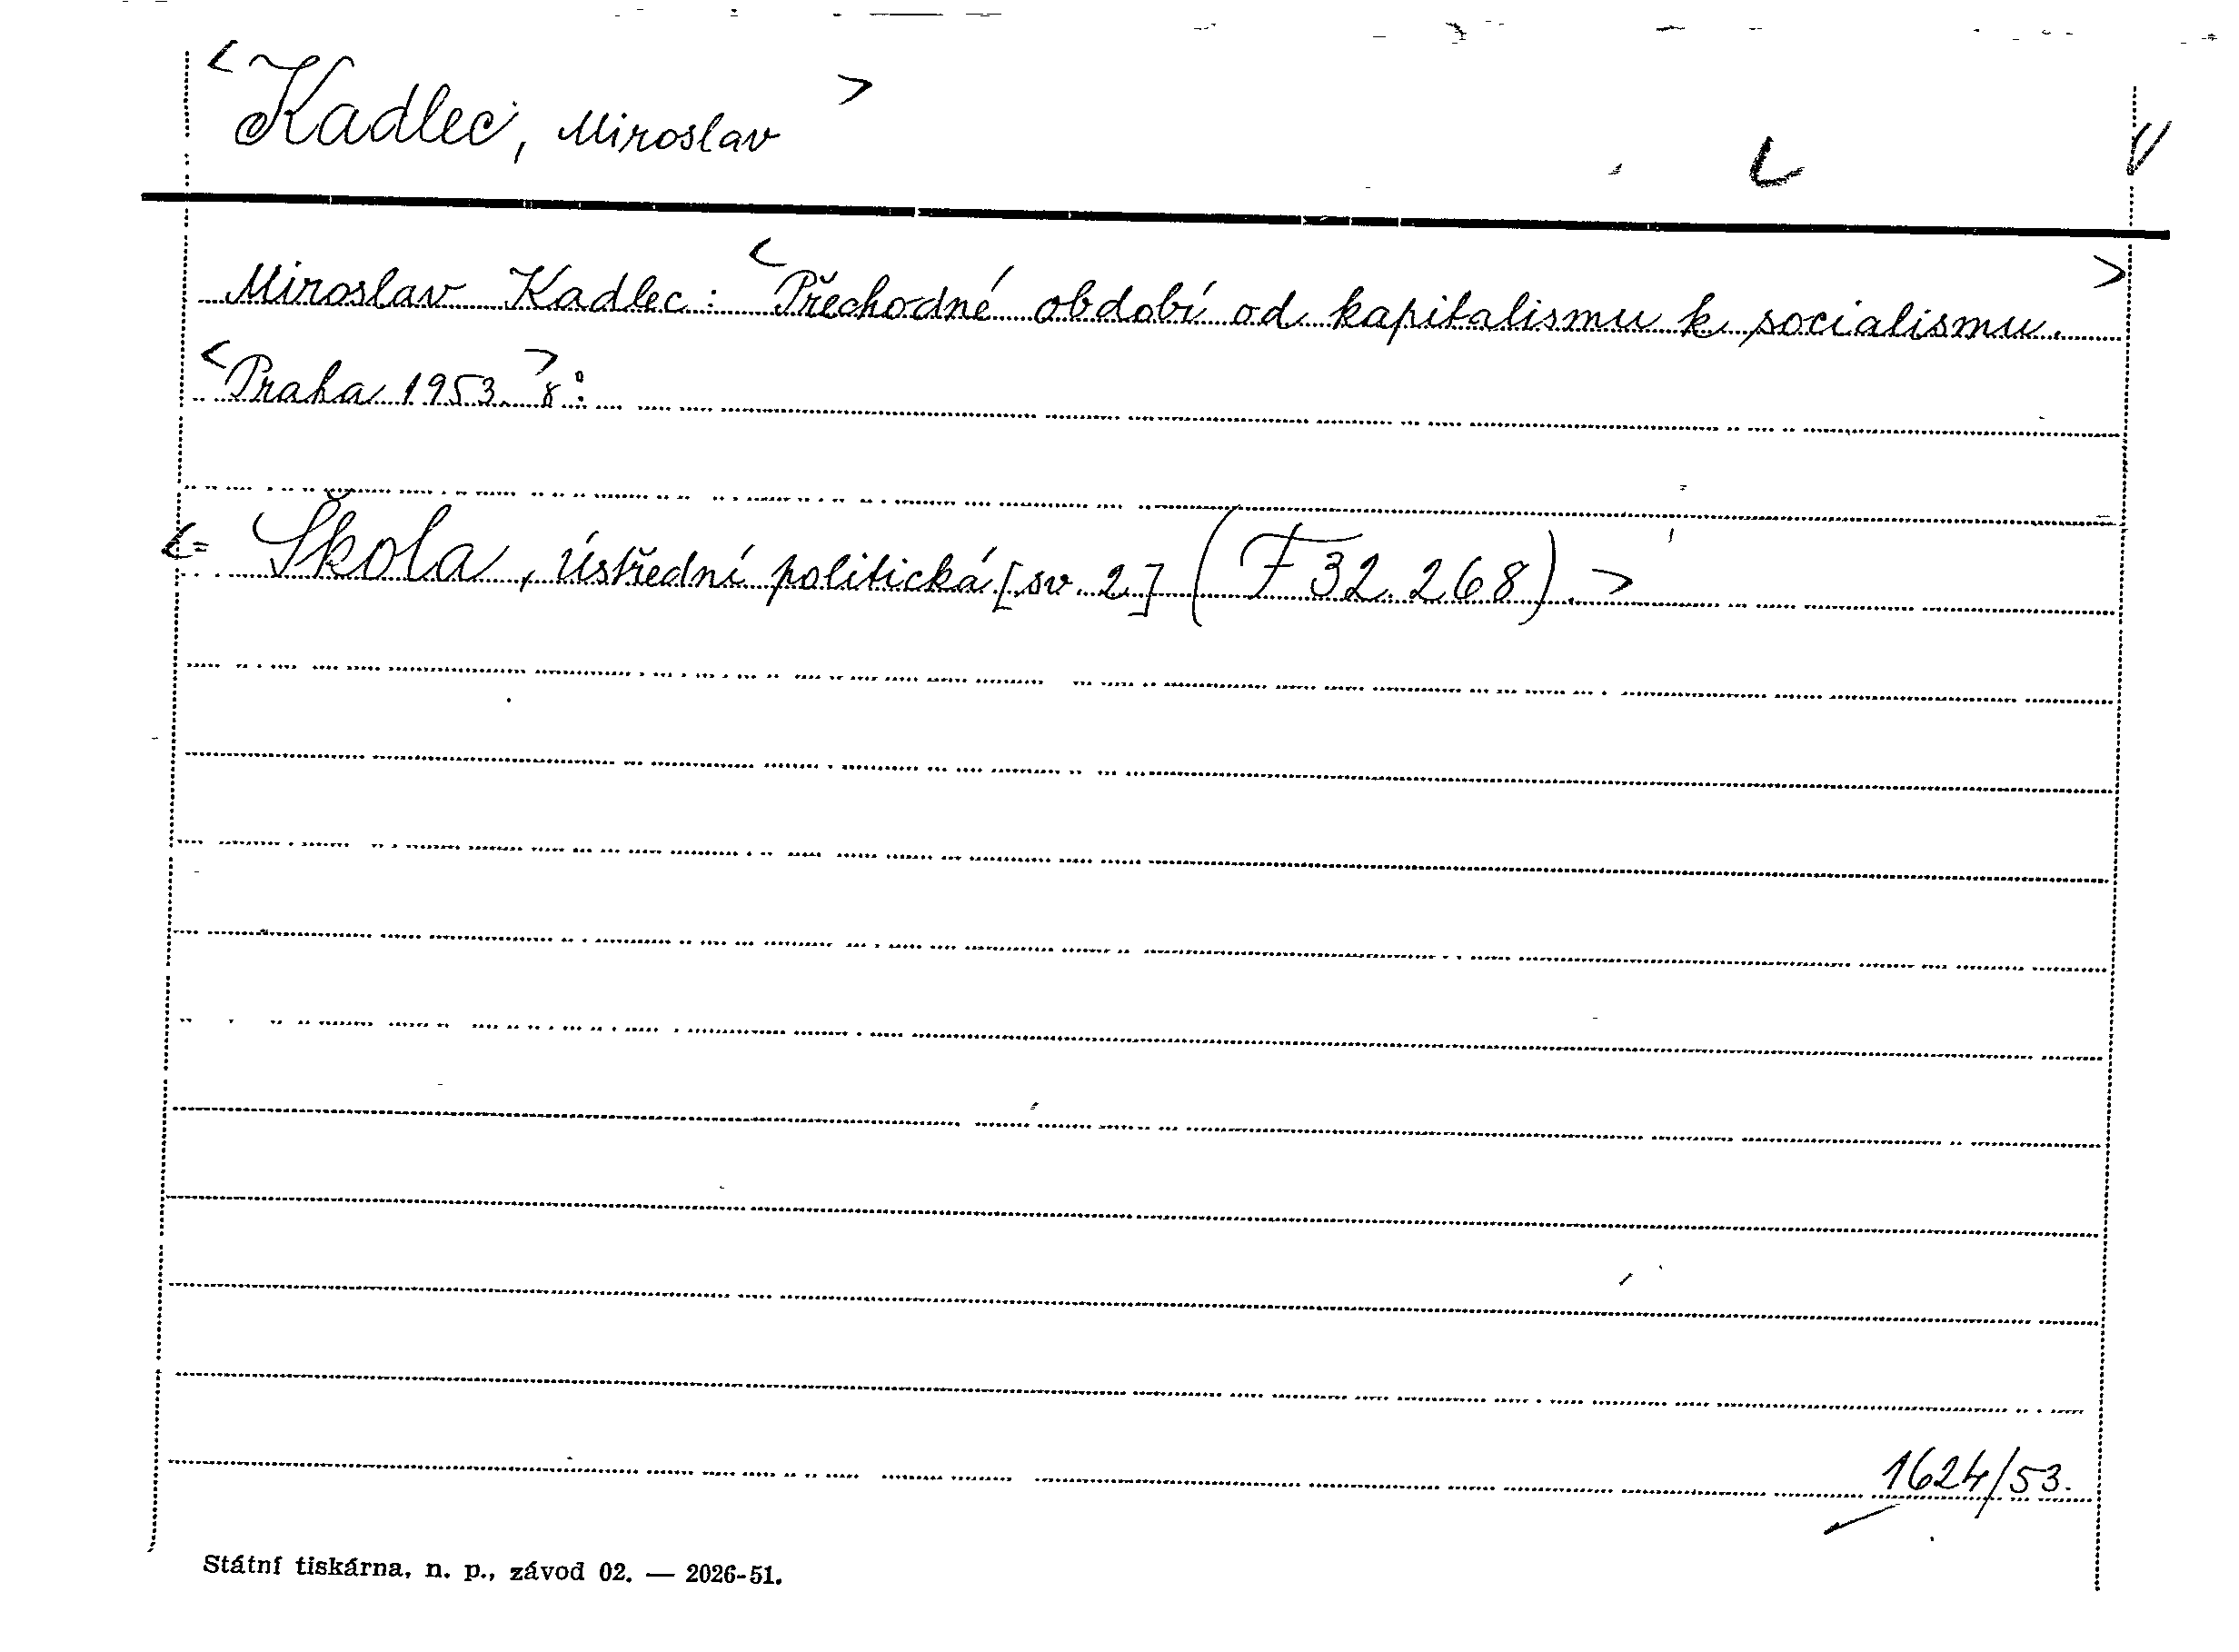 <Kadlec, Miroslav>
Miroslav Kadlec: <Přechodné období od kapitalismu k socialismu.>
<Praha 1953.> 8°.
<= Škola, Ústřední politická [sv. 2] (F 32.268).>
1624/53.
Státní tiskárna, n. p., závod 02. — 2026-51.